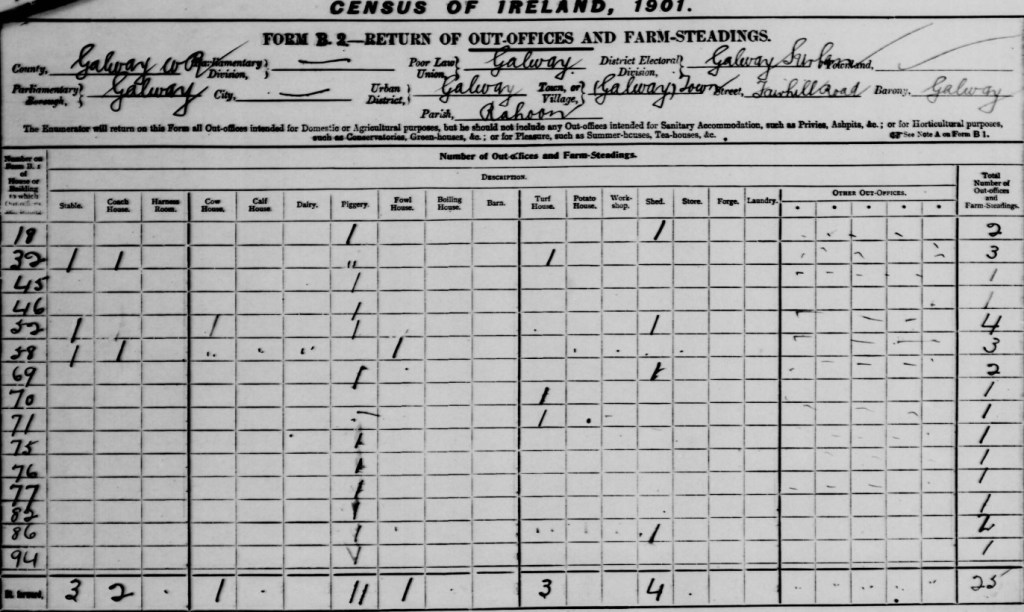 CENSUS OF IRELAND, 1901.
FORM B. 2.—RETURN OF OUT-OFFICES AND FARM-STEADINGS.
County, Galway Parliamentary Division, — Poor Law Union, Galway District Electoral Division, Galway Urban Townland,
Parliamentary Borough, Galway City, — Urban District, Galway Town, or Village, (Galway) Town Street, Fairhill Road Barony, Galway
Parish, Rahoon
The Enumerator will return on this Form all Out-offices intended for Domestic or Agricultural purposes, but he should not include any Out-offices intended for Sanitary Accommodation, such as Privies, Ashpits, &c.; or for Horticultural purposes,
such as Conservatories, Green-houses, &c.; or for Pleasure, such as Summer-houses, Tea-houses, &c. See Note A on Form B 1.
Number on Form B. 1 of House or Building to which Number of Out-offices and Farm-Steadings. Total Number of Out-offices and Farm-Steadings.
DESCRIPTION.
Stable. Coach House. Harness Room. Cow House. Calf House. Dairy. Piggery. Fowl House. Boiling House. Barn. Turf House. Potato House. Work-shop. Shed. Store. Forge. Laundry. OTHER OUT-OFFICES.
18 1 1 2
32 1 1 " 1 3
45 1 1
46 1 1
52 1 1 1 1 4
58 1 1 1 3
69 1 1 2
70 1 1
71 — 1 1
75 1 1
76 1 1
77 1 1
82 1 1
86 1 1 2
94 1 1
3 2 1 11 1 3 4 25